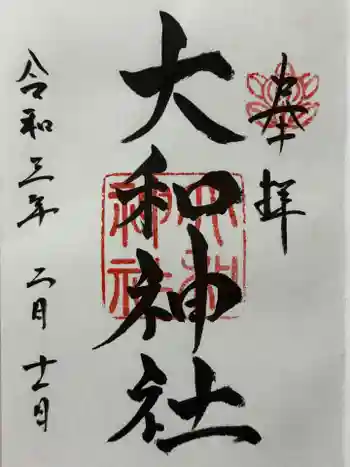 奉拝
大和神社
大和神社
令和三年 二月十一日